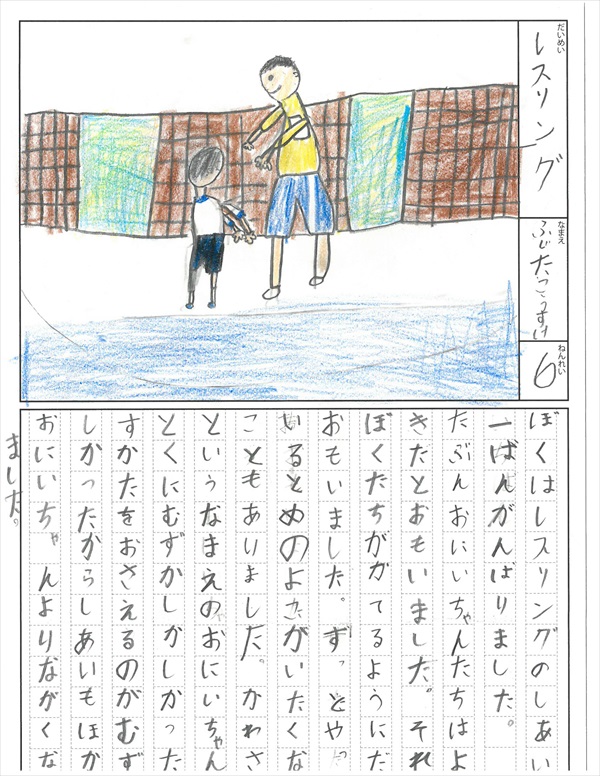 だいめい
レスリング
なまえ
ふじたこうすけ
ねんれい
6
ぼくはレスリングのしあい
一ばんがんばりました。
たぶんおにいちゃんたちはよ
きたとおもいました。それ
ぼくたちがかてるようにだ
おもいました。ずっとやっ
いるとめのよこがいたくな
こともありました。かわさ
というなまえのおにいちゃん
とくにむずかしかしかった
すかたをおさえるのがむず
しかったからしあいもほか
おにいちゃんよりながくな
ました。